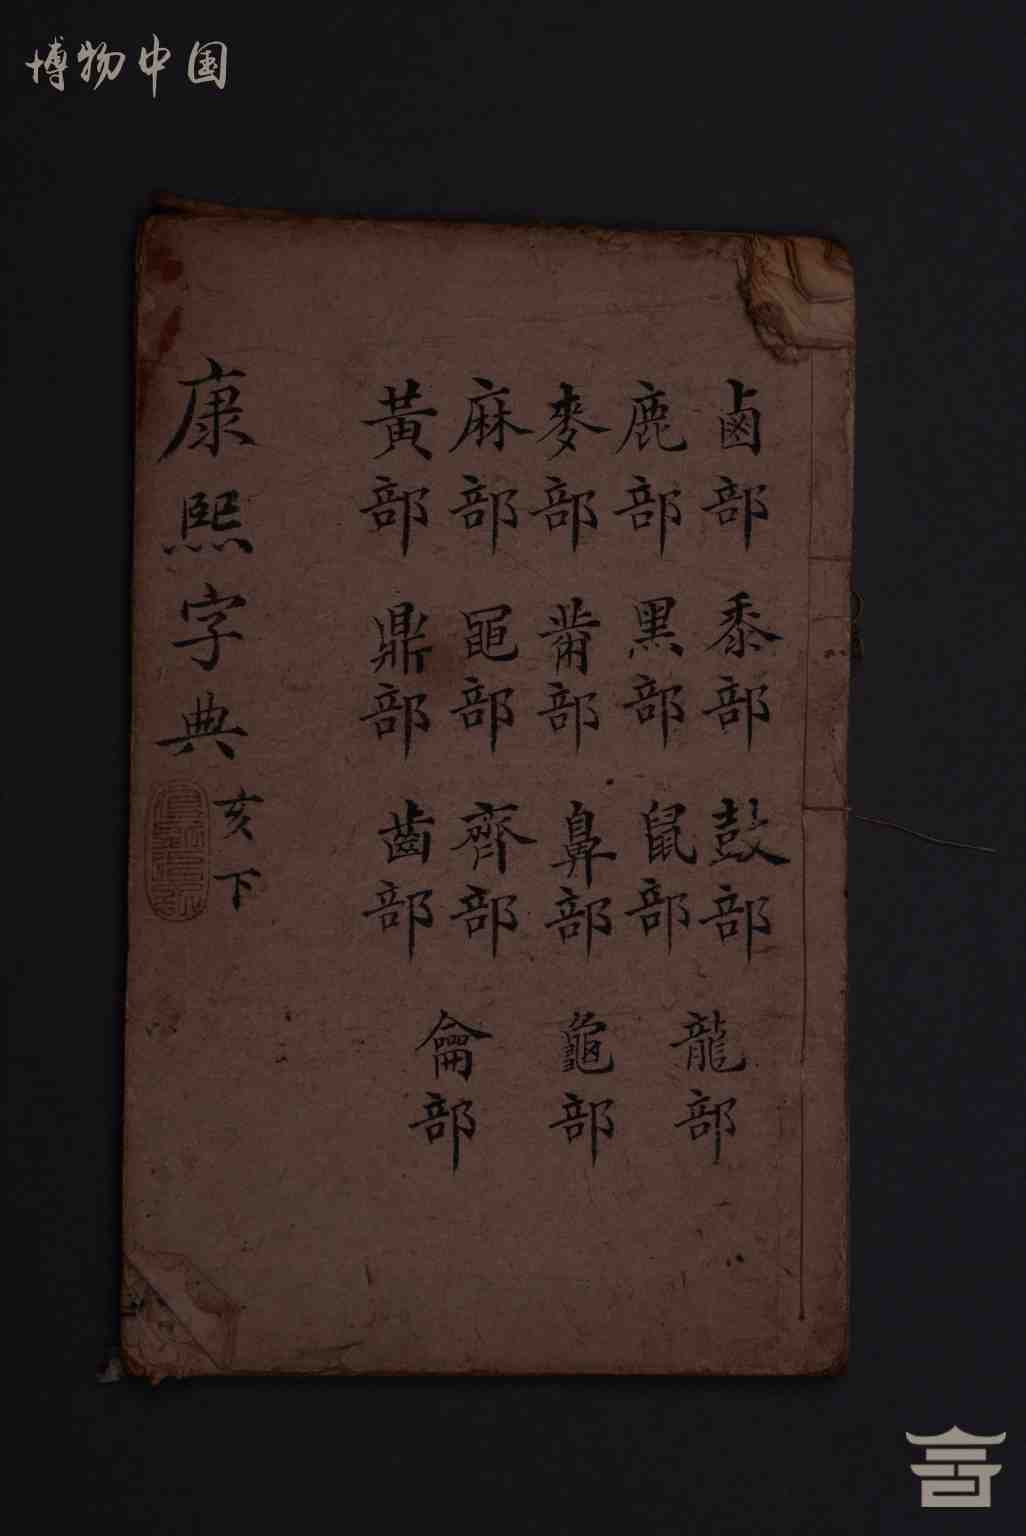 博物中国
鹵部 鹿部 麥部 麻部 黃部
黍部 黑部 黹部 黽部 鼎部
鼓部 鼠部 鼻部 齊部 齒部
龍部 龜部 龠部
康熙字典
亥下